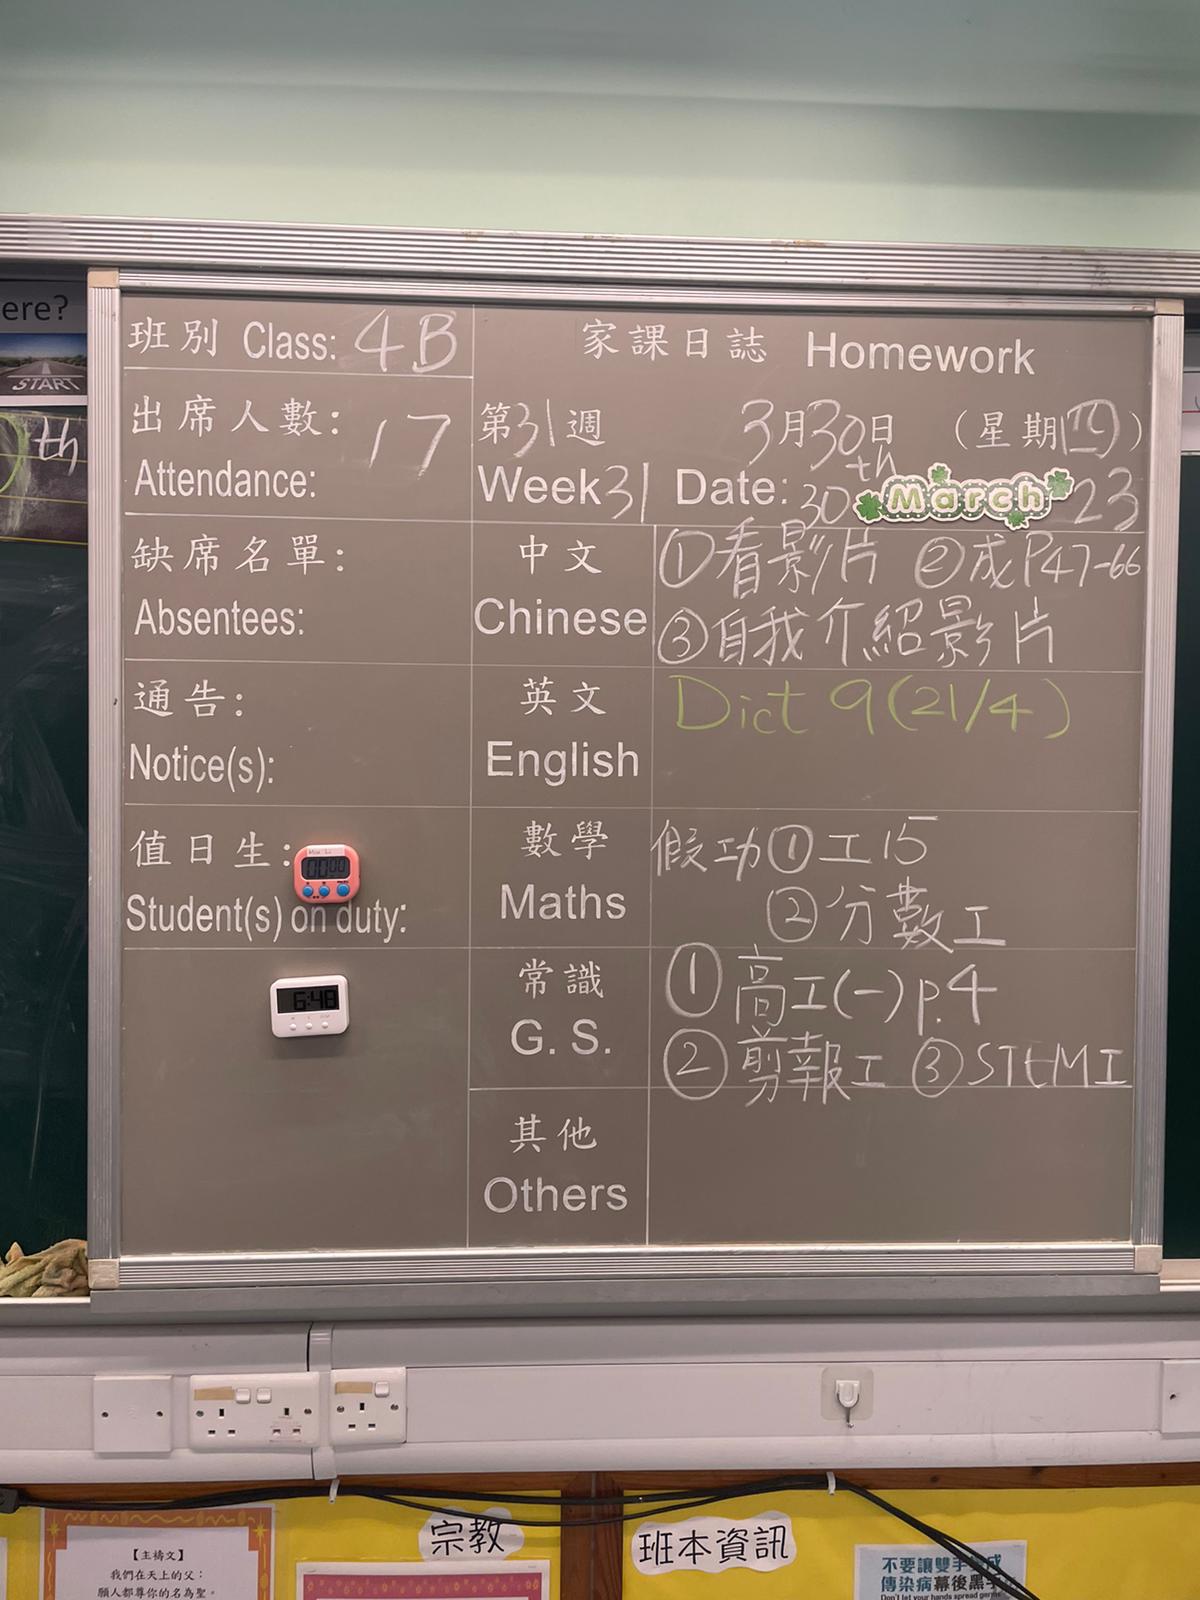 ere?
START
th
班別 Class: 4B
家課日誌 Homework
出席人數: 17
Attendance:
第31週 3月30日 (星期四)
Week31 Date: 30th March 23
缺席名單:
Absentees:
中文
Chinese
①看影片 ②成P47-66
③自我介紹影片
通告:
Notice(s):
英文
English
Dict 9(21/4)
值日生:
Student(s) on duty:
00:00
數學
Maths
假功①工15
②分數工
6:48
常識
G. S.
①高工(一)p.4
②剪報工 ③STEM工
其他
Others
宗教
班本資訊
【主禱文】
我們在天上的父：
願人都尊你的名為聖。
不要讓雙手成
傳染病幕後黑手
Don't let your hands spread germs